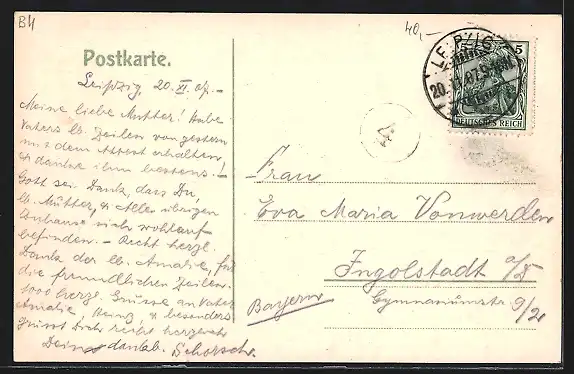 B4
40,-
Postkarte.
Leipzig, 20. XI. 07.-
Meine liebe Mutter! Habe
Vaters lb. Zeilen von gestern
mit dem Attest erhalten!
Ich danke ihm bestens! -
Gott sei Dank, dass Du,
lb. Mütter, & Alle übrigen
Anhause sich wohlauf
befinden. - Recht herzl.
Dank der lb. Amalie, für
die freundlichen Zeilen.
1000 herzl. Grüsse an Vater
Amalie, & besonders
grüsst Dich recht herzl.
Dein dankb. Schorsch.
LEIPZIG
20.11.07
5
DEUTSCHES REICH
4
Frau
Eva Maria Vonwerden
Ingolstadt a/D
Bayern
Gymnasiumstr. 9/2